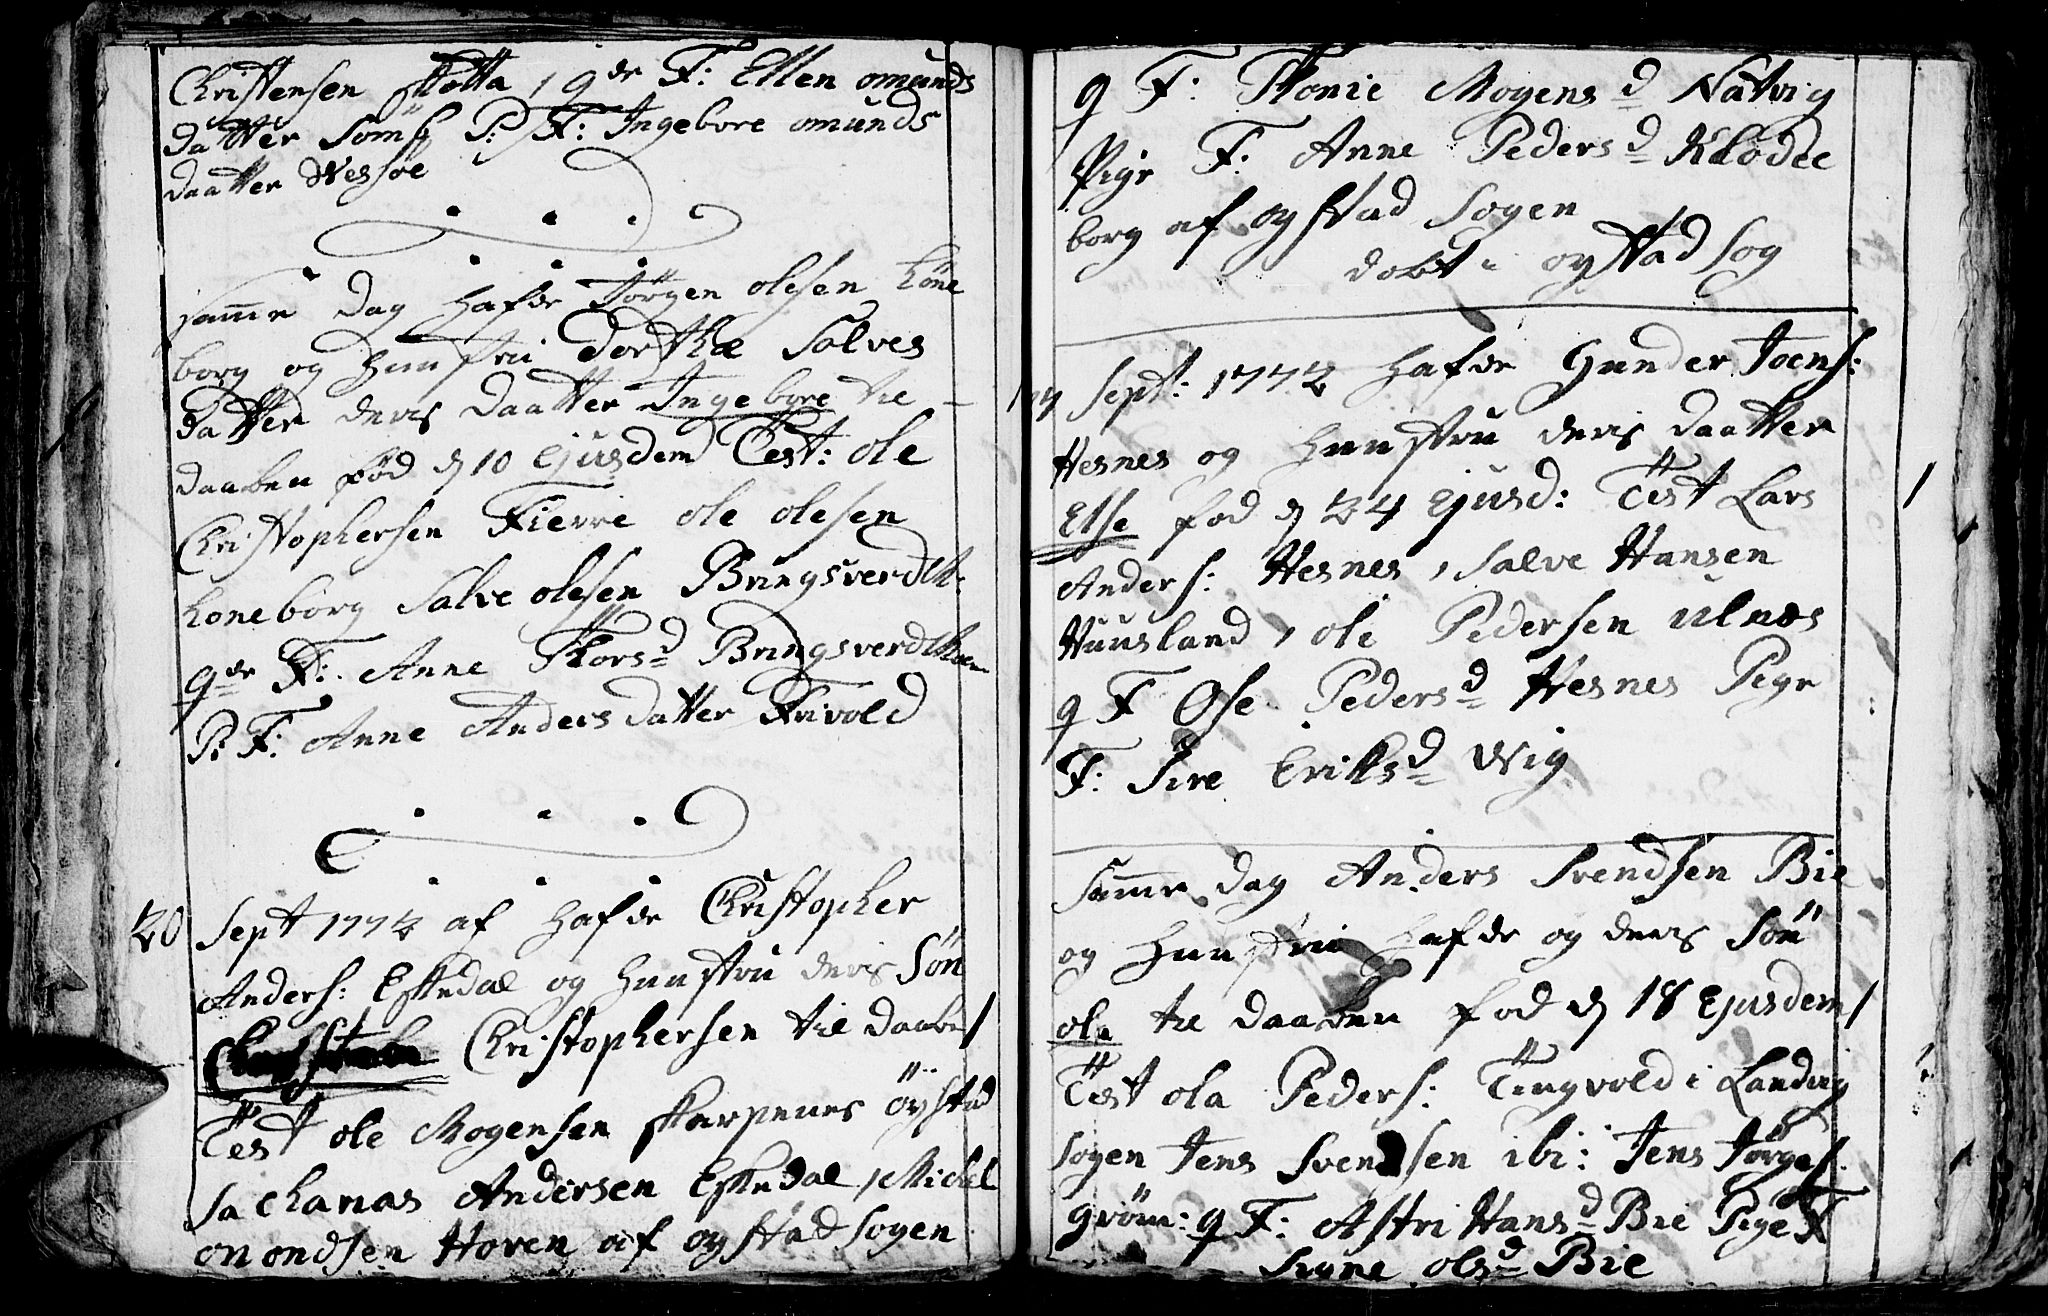 Christensen Skotta, gde F: Ellen omunds
datter Sömß P: F: Ingebore omunds
daatter Wessøe
samme Dag hafde Jörgen olesen höne
borg og hunstru Dorthe Salves
datter deris daatter Ingebore til
daaben föd d 10 Ejusdem Test: ole
Christophersen Fierre ole olesen
honeborg Salve olesen Bringsverdth:
gde F: Anne Thorsd Bringsverdthom
P: F: Anne Anders datter Frivold
20 Sept 1772 af hafde Christopher
Anders: Eskedal og hunstru deris Sön
Christophersen til daabe /
Test ole Mogensen Skarpenes öystad
Sacharias Andersen Eskedal, Michel
omondsen Hoven af oystad Sogen
g F: Thonie Mogensd Natvig
Pige F: Anne Pedersd Klodee
borg af oystad Sogen
dobt i oystad sog
27 Sept: 1772 hafde Gunder Joens:
Hesnes og hunstru deris daatter
Else fod d 24 Ejusd: Test Lars
Anders: Hesnes, Salve Hansen
Huusland, ole Pedersen ulnæs
g F Ose Pedersd Hesnes Pige
F: Sire Eriksd Wig
1
samme dag Anders Svendsen Bie
og hunstru hafde og deris Sön
ola til daaben fod d 18 Ejusdem /
Test ola Peders: Tingvold i Landvig
sogen Jens Svendsen ibi: Jens Jörges:
Gröm: g F: Astri Hansd Bie Pige F
Signe olsd Bie